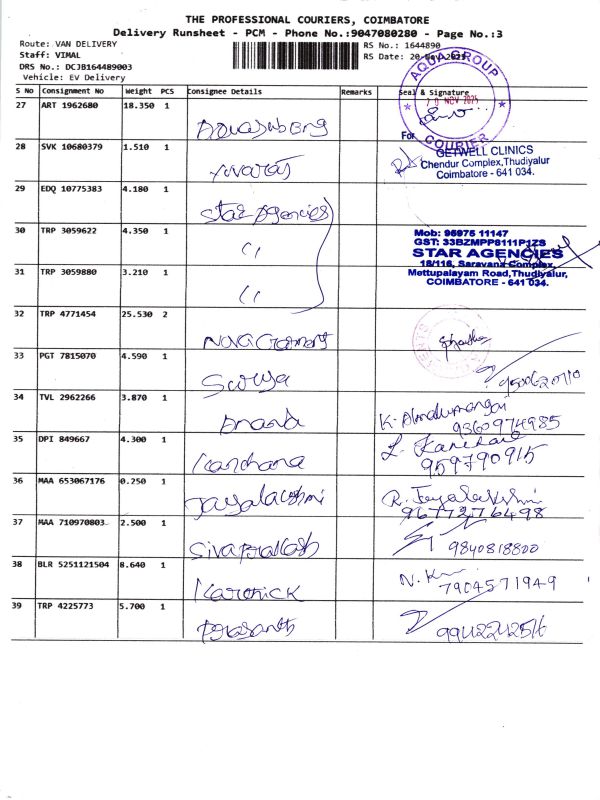 THE PROFESSIONAL COURIERS, COIMBATORE
Delivery Runsheet - PCM - Phone No.:9047080280 - Page No.:3
Route: VAN DELIVERY
Staff: VIMAL
DRS No.: DCJB164489003
Vehicle: EV Delivery
RS No.: 1644890
RS Date: 20-Nov-2025
S No Consignment No Weight PCS Consignee Details Remarks Seal & Signature
27 ART 1962680 18.350 1
AQUA GROUP
20 NOV 2025
COURIER
28 SVK 10680379 1.510 1 Yuvaraj
For GETWELL CLINICS
Chendur Complex,Thudiyalur
Coimbatore - 641 034.
29 EDQ 10775383 4.180 1 Star Agencies
30 TRP 3059622 4.350 1 "
31 TRP 3059880 3.210 1 "
Mob: 95975 11147
GST: 33BZMPP8111P1ZS
STAR AGENCIES
18/116, Saravana Complex,
Mettupalayam Road,Thudiyalur,
COIMBATORE - 641 034.
32 TRP 4771454 25.530 2
33 PGT 7815070 4.590 1 Surya
34 TVL 2962266 3.870 1 Anand K. 9360974985
35 DPI 849667 4.300 1 Kanchana 959790915
36 MAA 653067176 0.250 1 Jayalakshmi R. Jayalakshmi
9677276498
37 MAA 710970803 2.500 1 Sivaprakash 9840818800
38 BLR 5251121504 8.640 1 Karthick N. 7904571949
39 TRP 4225773 5.700 1 Prasanth